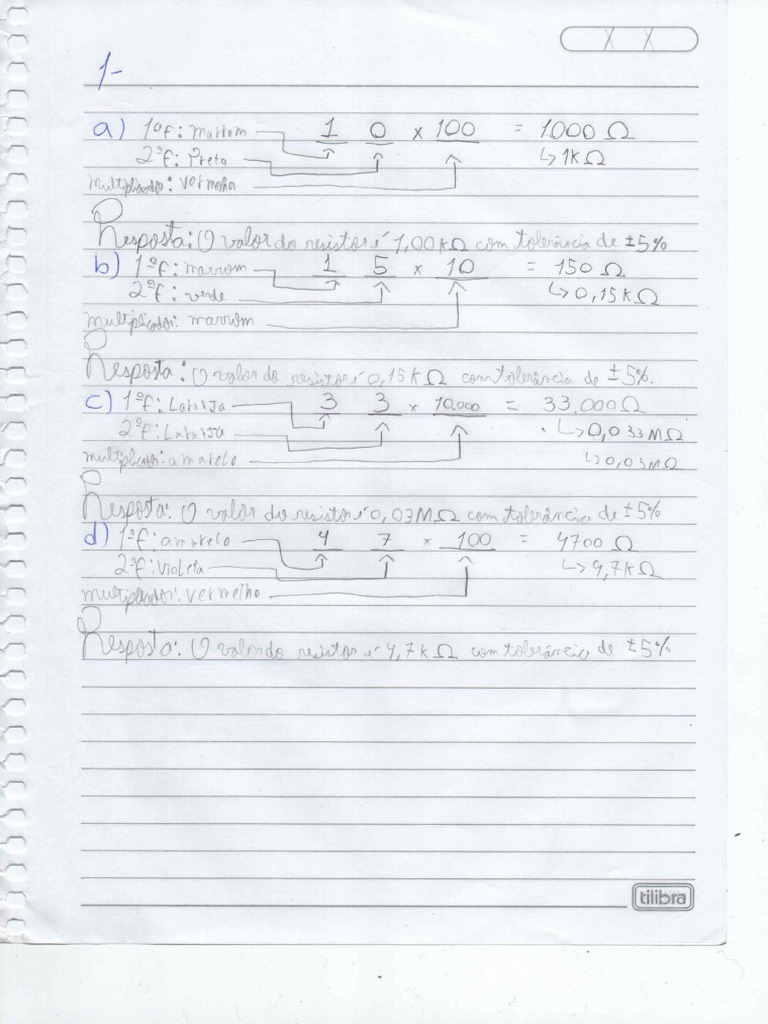 X X
1-
a) 1ºf: marrom 1 0 x 100 = 1000 Ω
2ºf: Preto ↳ 1KΩ
multiplicador: vermelho
Resposta: O valor do resistor é 1,00KΩ com tolerância de ±5%
b) 1ºf: marrom 1 5 x 10 = 150 Ω
2ºf: verde ↳ 0,15KΩ
multiplicador: marrom
Resposta: O valor do resistor é 0,15KΩ com tolerância de ±5%.
c) 1ºf: Laranja 3 3 x 10.000 = 33.000Ω
2ºf: Laranja ↳ 0,033MΩ
multiplicador: amarelo ↳ 0,03MΩ
Resposta: O valor do resistor é 0,03MΩ com tolerância de ±5%
d) 1ºf: amarelo 4 7 x 100 = 4700 Ω
2ºf: Violeta ↳ 4,7KΩ
multiplicador: vermelho
Resposta: O valor do resistor é 4,7KΩ com tolerância de ±5%
tilibra